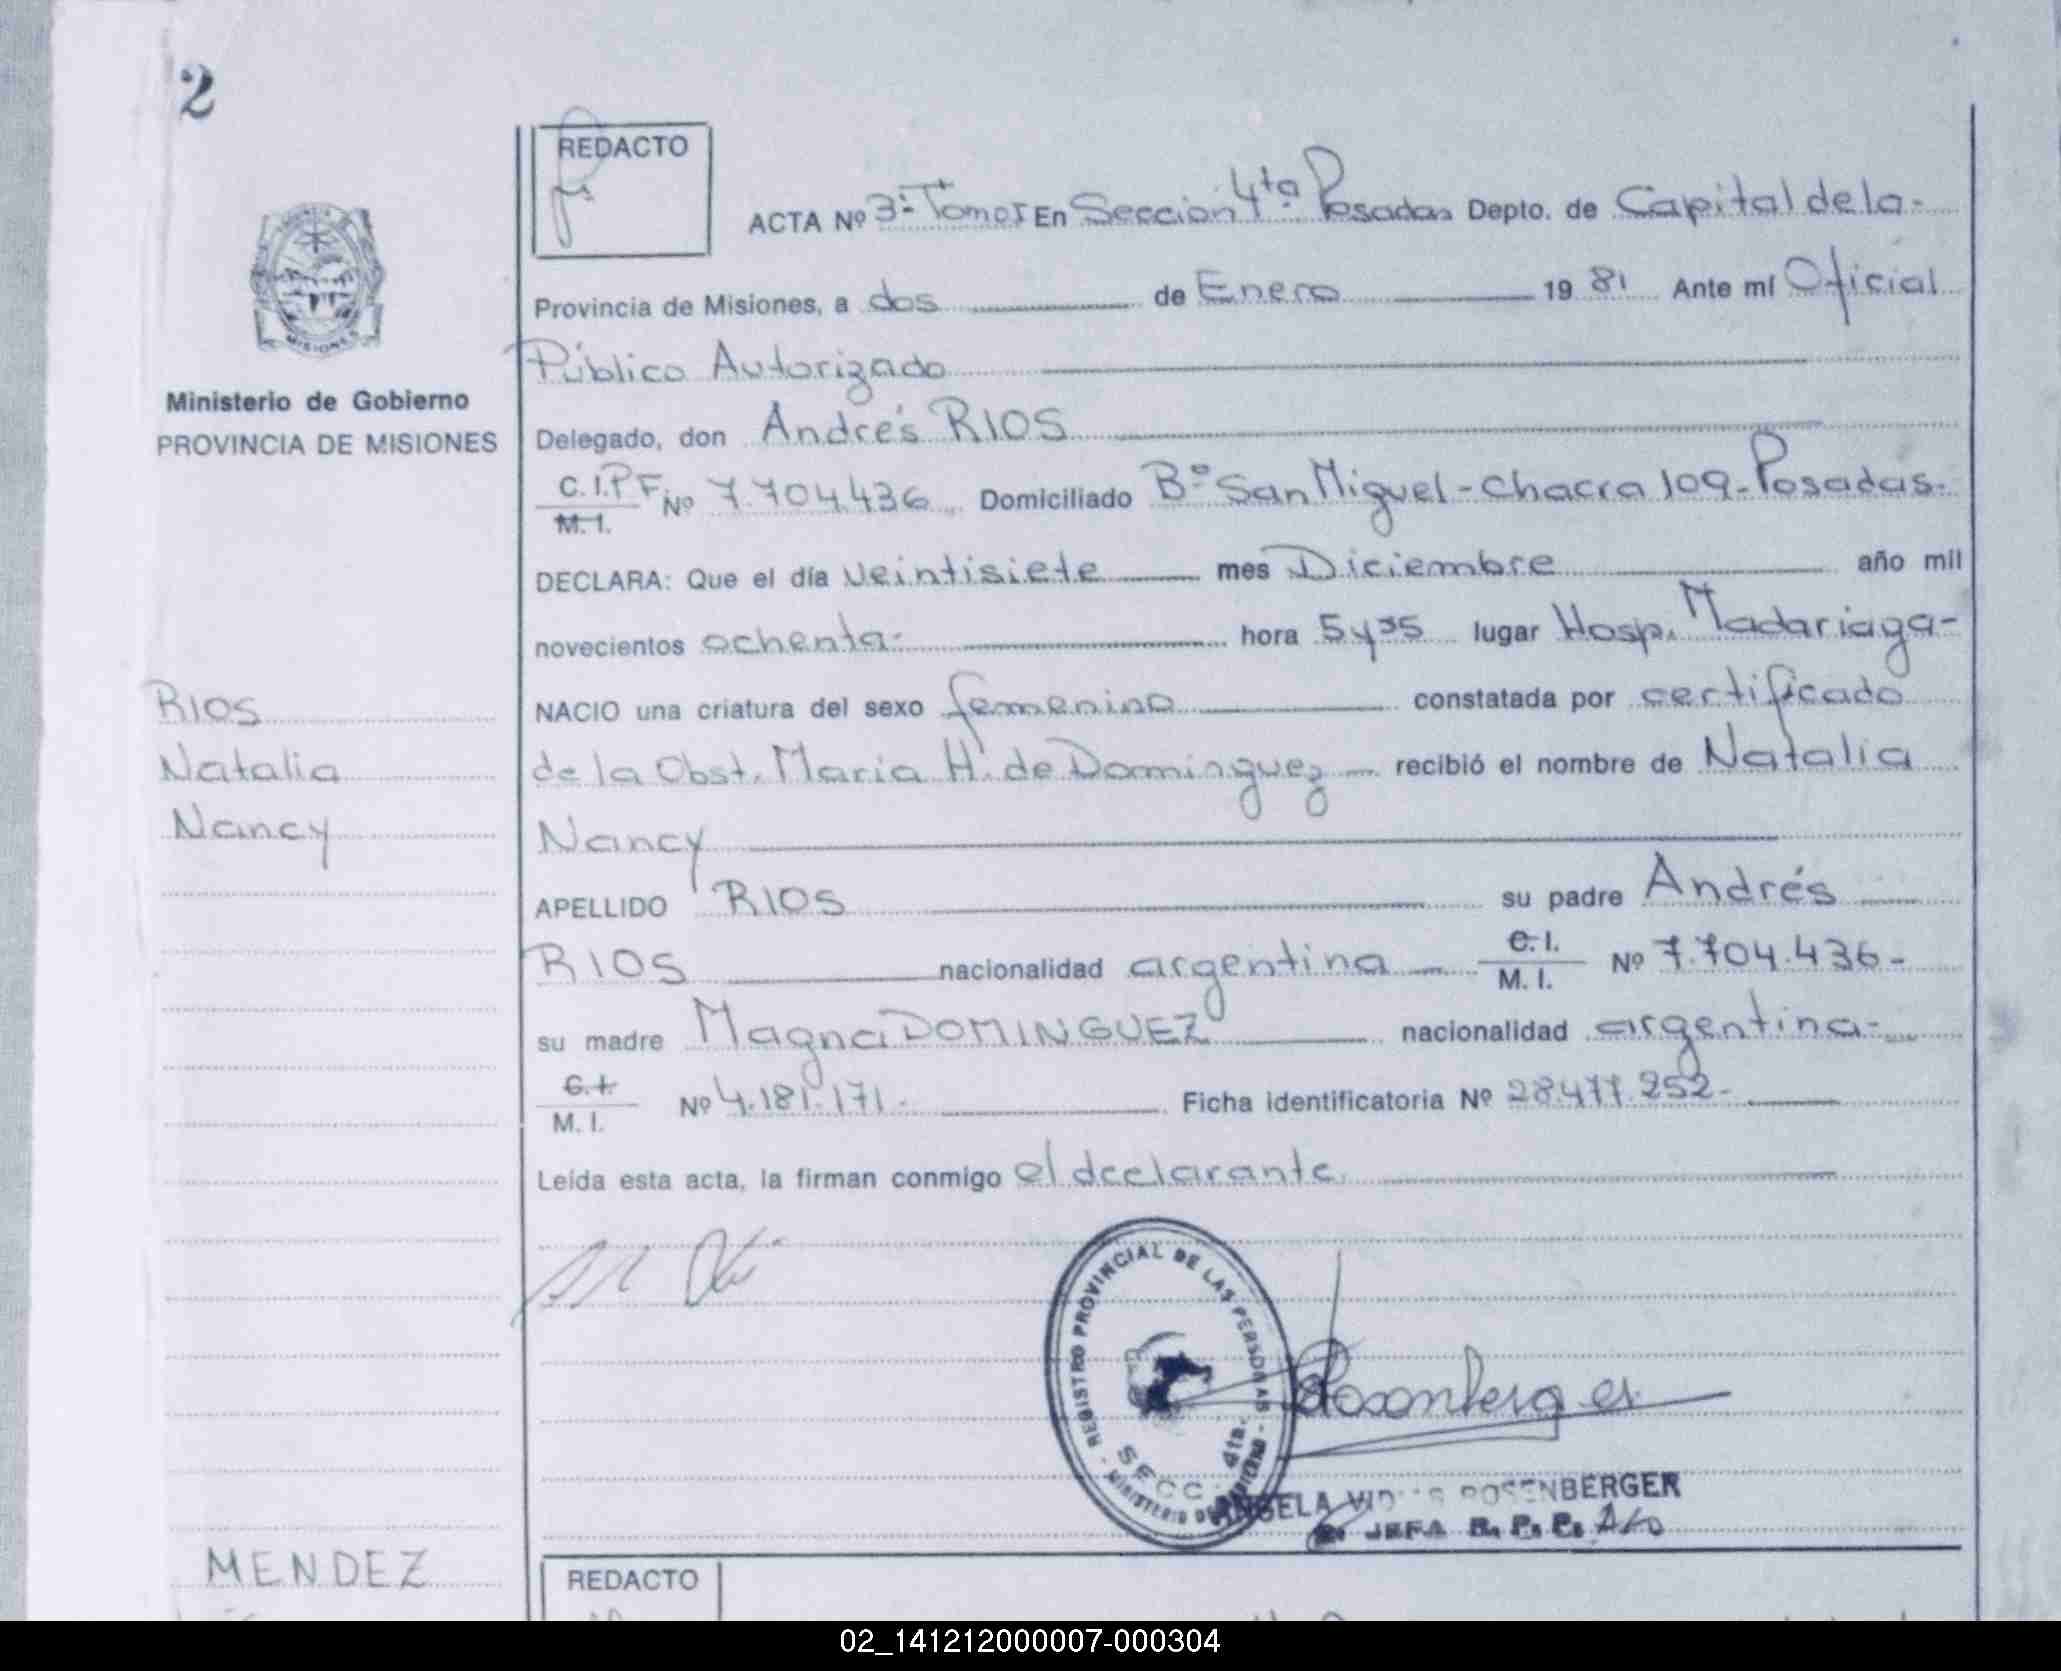 2
REDACTO
ACTA Nº 3- Tomo I En Sección 4ta Posadas Depto. de Capital de la-
Provincia de Misiones, a dos de Enero 1981 Ante mí Oficial
Público Autorizado
Ministerio de Gobierno
PROVINCIA DE MISIONES
Delegado, don Andrés RIOS
C.I.P.F. Nº 7.704.436 Domiciliado Bº San Miguel - Chacra 109 - Posadas.
M. I.
DECLARA: Que el día veintisiete mes Diciembre año mil
novecientos ochenta- hora 5 y 35 lugar Hosp. Madariaga-
RIOS
NACIO una criatura del sexo femenino constatada por certificado
Natalia
de la Obst. Maria H. de Dominguez recibió el nombre de Natalia
Nancy
Nancy
APELLIDO RIOS su padre Andrés
RIOS nacionalidad argentina C. I. M. I. Nº 7.704.436-
su madre Magna DOMINGUEZ nacionalidad argentina-
C. I. M. I. Nº 4.181.171- Ficha identificatoria Nº 28.477.252-
Leída esta acta, la firman conmigo el declarante.
REGISTRO PROVINCIAL DE LAS PERSONAS
SECC. 4ta.
MINISTERIO DE GOBIERNO
Rosenberger
ANGELA ROSENBERGER
JEFA R. P. P.
MENDEZ
REDACTO
02_141212000007-000304